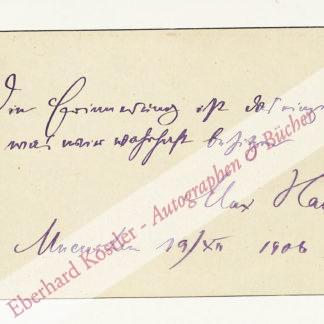 Die Erinnerung ist das einzige
was wir wahrhaft besitzen
Max Hal
Muenchen 19/XII 1906
Eberhard Köstler - Autographen & Bücher